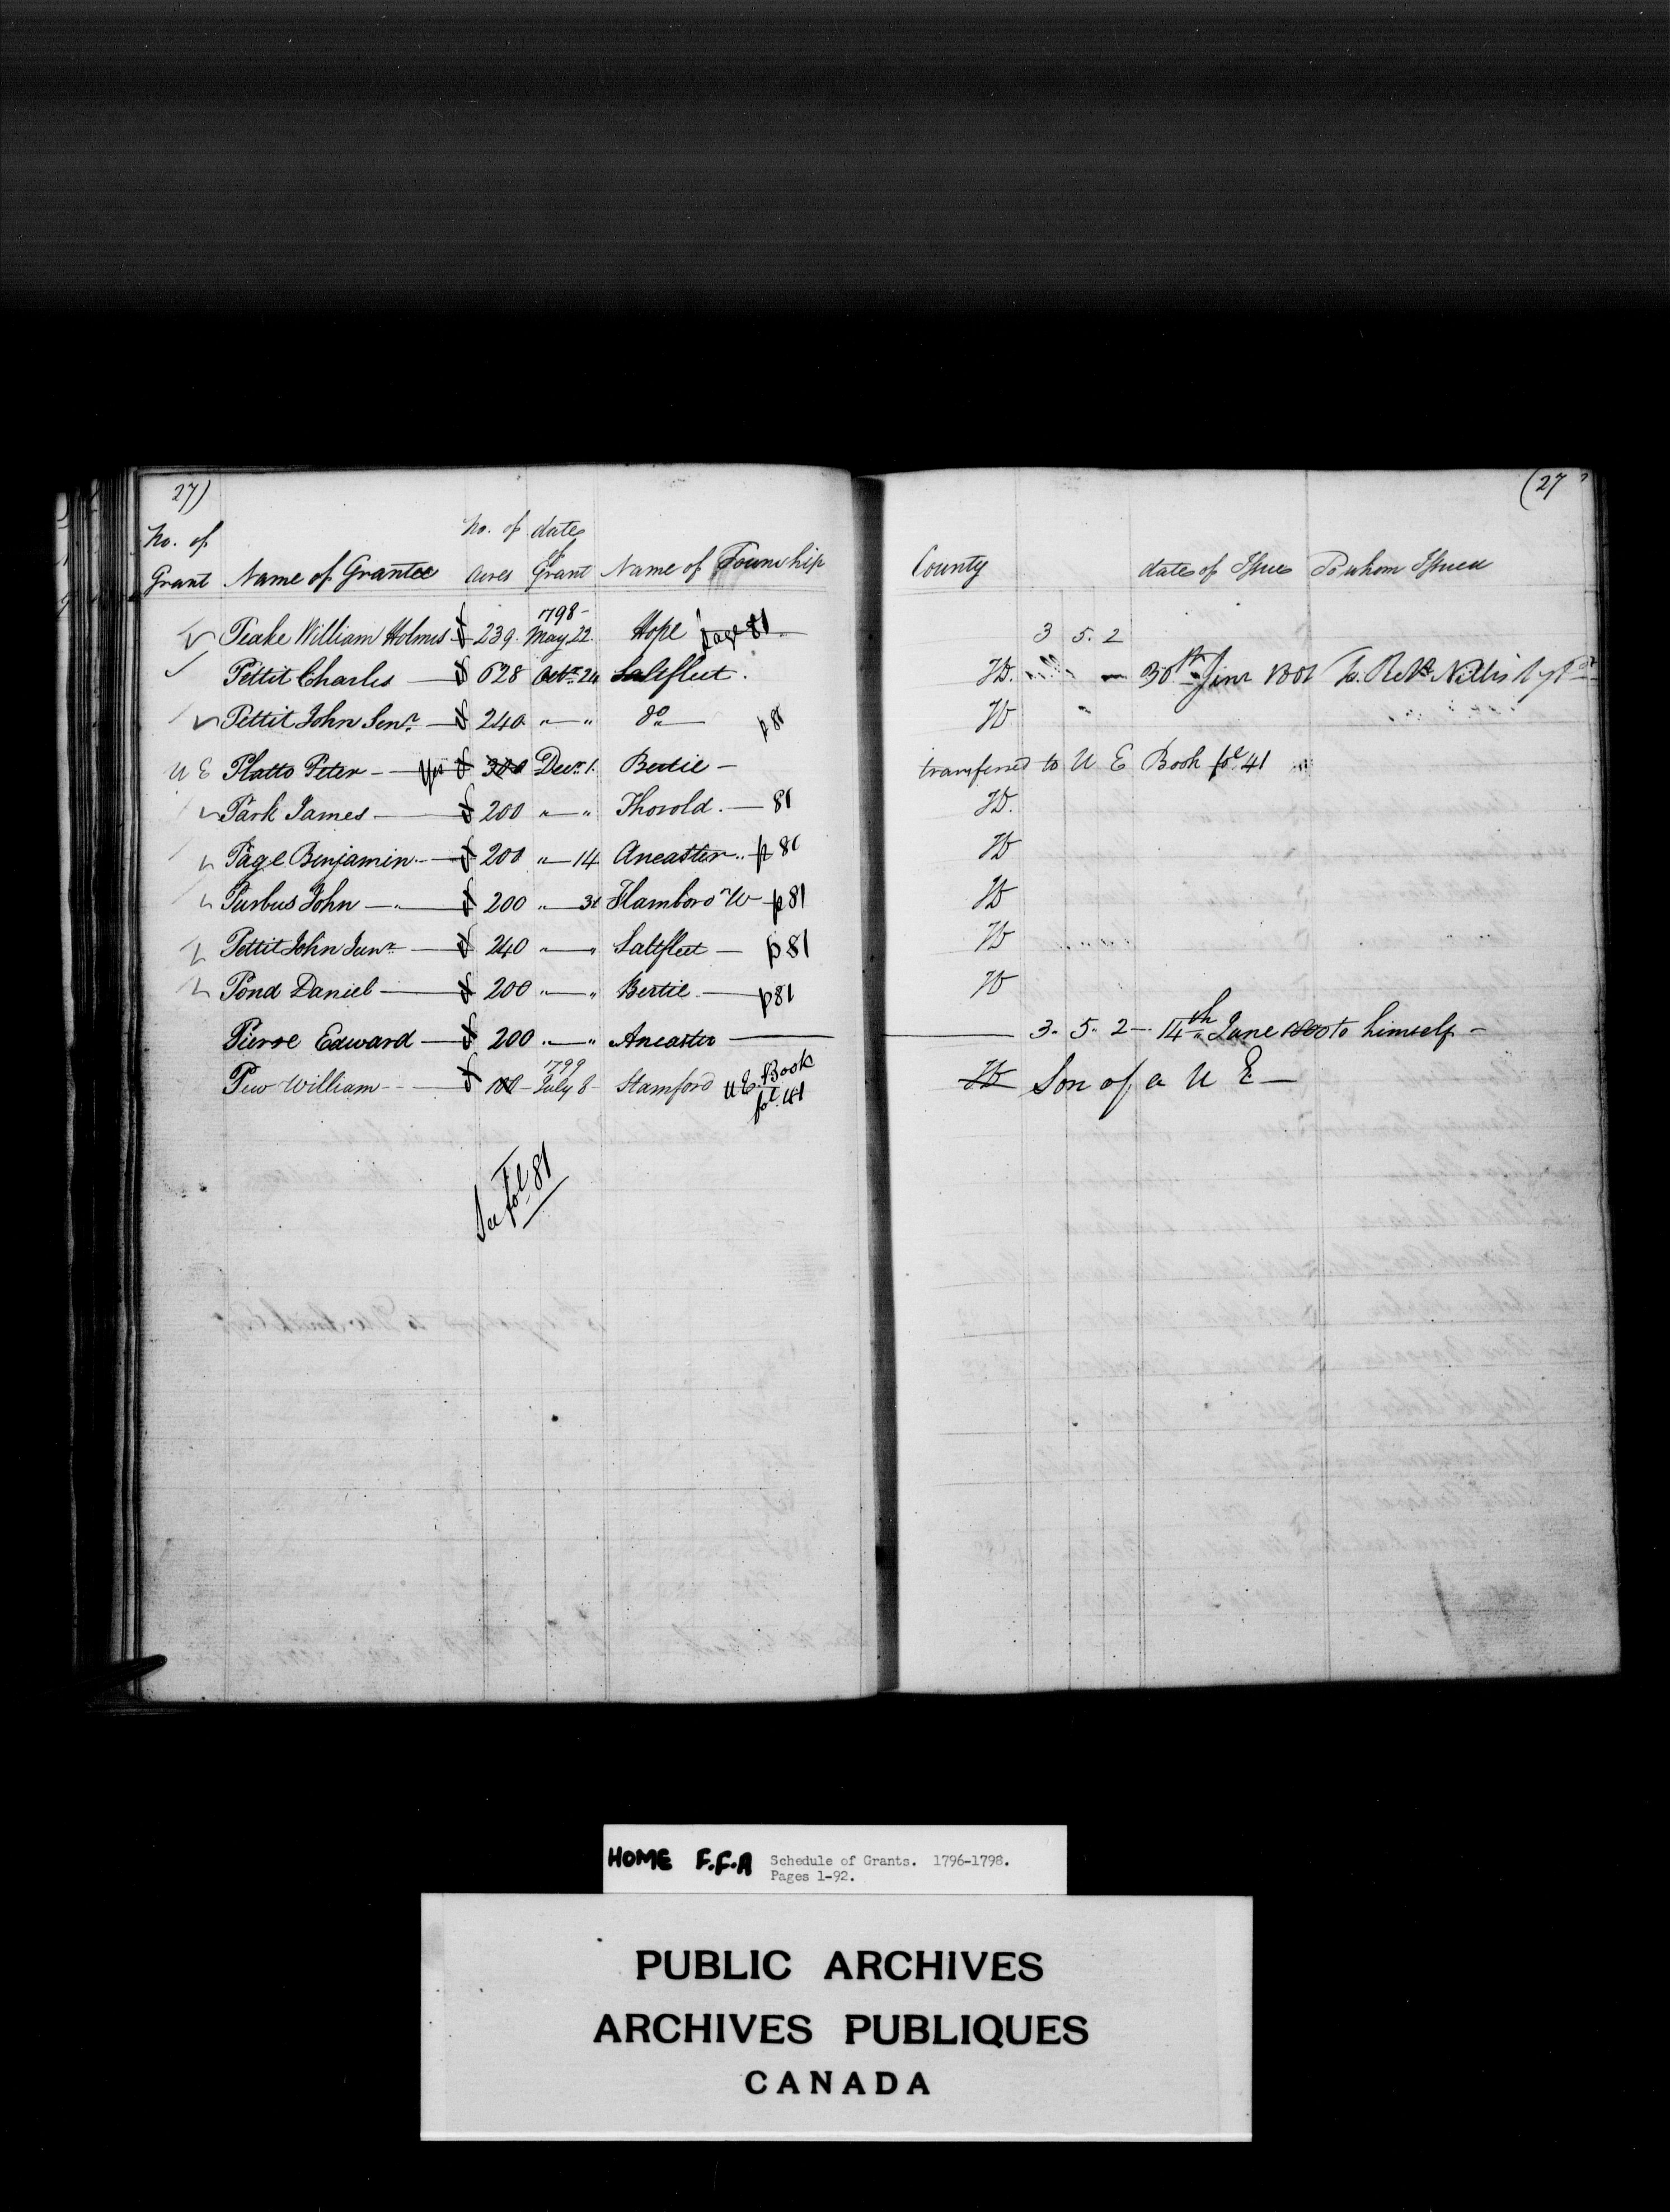 27) (27
No. of No. of date
Grant Name of Grantee Acres of Grant Name of Township County date of Issue To whom Issued
1798-
Peake William Holmes 239 May 22 Hope page 81 3 5. 2
Pettit Charles 628 Octr. 24 Saltfleet. HD. 30th 1801
Pettit John Senr. 240 " " do p 81 HD
U E Platto Peter 300 Decr. 1. Bertie transferred to U E Book fol 41
Park James 200 " " Thorold. 81 HD.
Page Benjamin 200 " 14 Ancaster p 81 HD
Purbus John 200 " 31 Flamboro' W p 81 HD
Pettit John Junr. 240 " " Saltfleet p 81 HD
Pond Daniel 200 " " Bertie p 81 HD
Pierse Edward 200 " " Ancaster 3. 5. 2 14th June 1800 to himself
1799
Puw William 100 July 8 Stamford U E. Book fol. 41 HD Son of a U E
See fol 81
HOME F.F.A Schedule of Grants. 1796-1798.
Pages 1-92.
PUBLIC ARCHIVES
ARCHIVES PUBLIQUES
CANADA